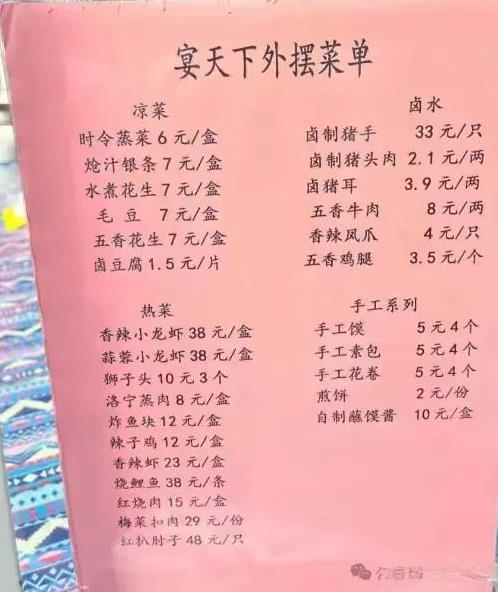 宴天下外摆菜单
凉菜
时令蒸菜 6 元/盒
炝汁银条 7 元/盒
水煮花生 7 元/盒
毛 豆 7 元/盒
五香花生 7 元/盒
卤豆腐 1.5 元/片
热菜
香辣小龙虾 38 元/盒
蒜蓉小龙虾 38 元/盒
狮子头 10 元 3 个
洛宁蒸肉 8 元/盒
炸鱼块 12 元/盒
辣子鸡 12 元/盒
香辣虾 23 元/盒
烧鲤鱼 38 元/条
红烧肉 15 元/盒
梅菜扣肉 29 元/份
红扒肘子 48 元/只
卤水
卤制猪手 33 元/只
卤制猪头肉 2.1 元/两
卤猪耳 3.9 元/两
五香牛肉 8 元/两
香辣凤爪 4 元/只
五香鸡腿 3.5 元/个
手工系列
手工馍 5 元 4 个
手工素包 5 元 4 个
手工花卷 5 元 4 个
煎饼 2 元/份
自制蘸馍酱 10 元/盒